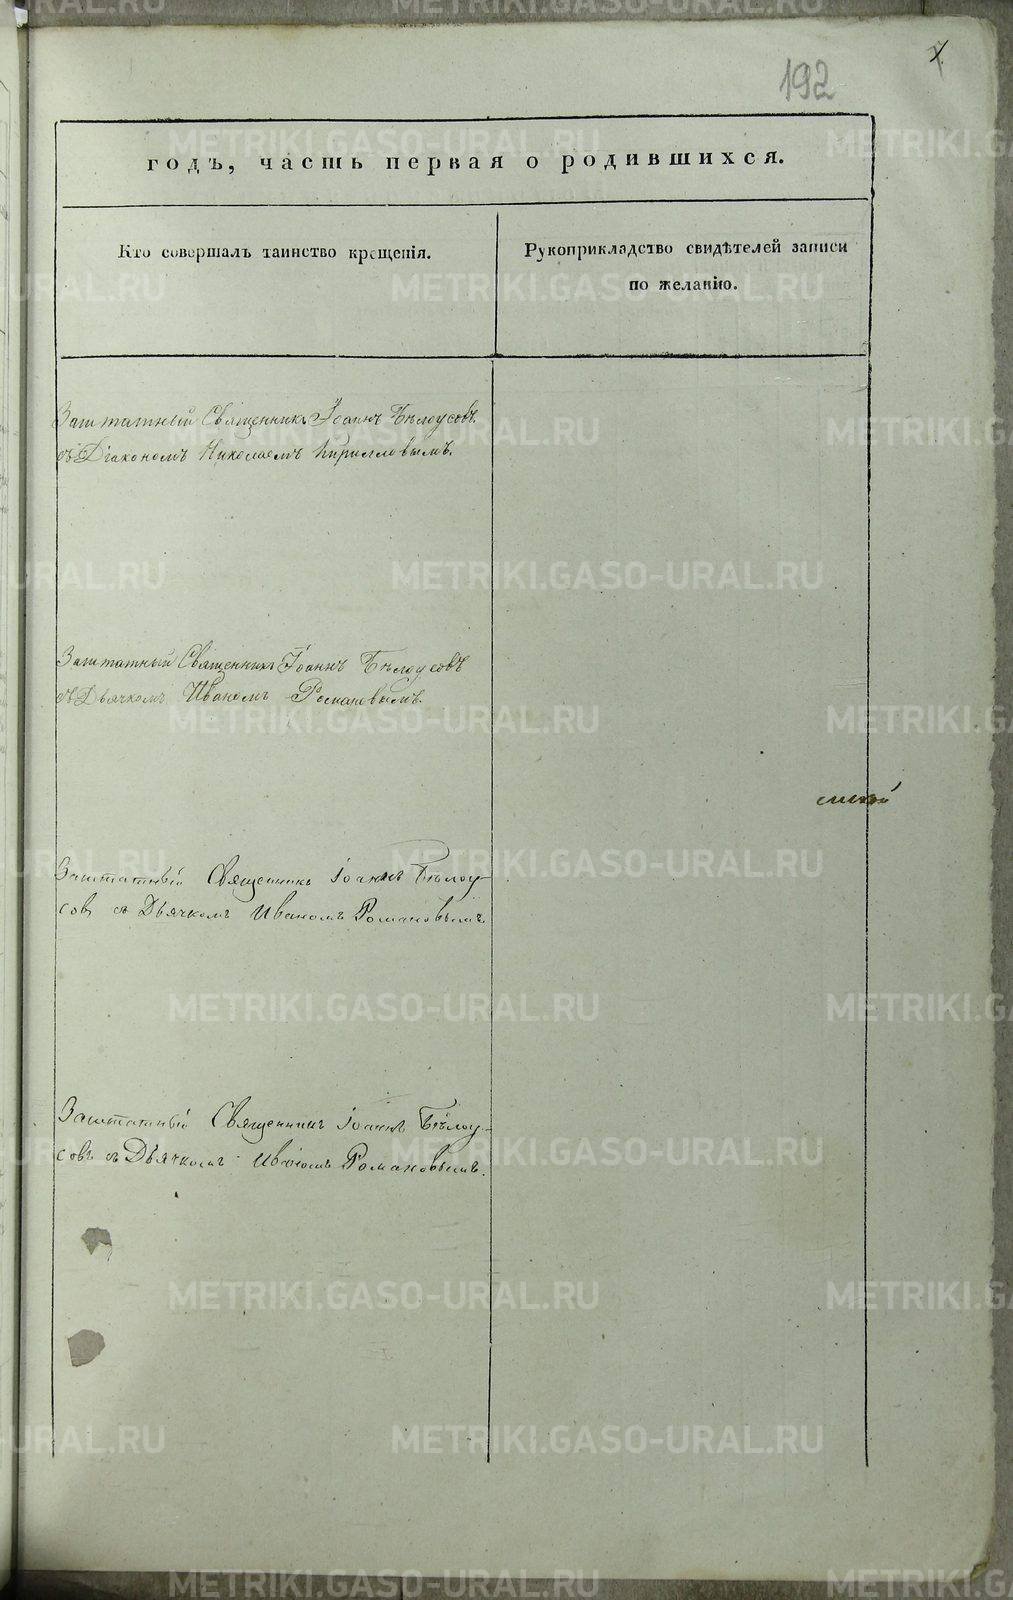 192
годъ, часть первая о родившихся.
Кто совершалъ таинство крещенія.
Рукоприкладство свидѣтелей записи
по желанію.
Заштатный Священникъ Іоаннъ Бѣлоусовъ
съ Діакономъ Николаемъ Кирилловымъ.
Заштатный Священникъ Іоаннъ Бѣлоусовъ
съ Дьячкомъ Иваномъ Романовымъ.
Заштатный Священникъ Іоаннъ Бѣлоу-
совъ съ Дьячкомъ Иваномъ Романовымъ.
Заштатный Священникъ Іоаннъ Бѣлоу-
совъ съ Дьячкомъ Иваномъ Романовымъ.
METRIKI.GASO-URAL.RU